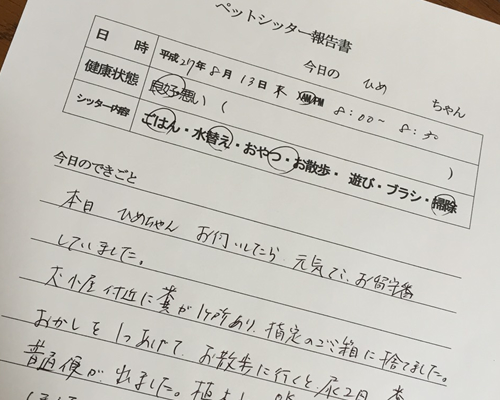 ペットシッター報告書
今日の ひめ ちゃん
日 時 平成27年8月13日木 AM/PM 8:00〜8:30
健康状態 良好・悪い ( )
シッター内容 ごはん・水替え・おやつ・お散歩・遊び・ブラシ・掃除
今日のできごと
本日 ひめちゃん お伺いしたら 元気で、お留守番
していました。
犬小屋付近に糞が1ケ所あり、指定のゴミ箱に捨てました。
おかしを1つあげて、お散歩に行くと、尿2回、
普通便が出ました。